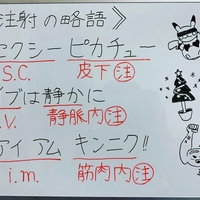 注射の略語》
セクシーピカチュー
S.C. 皮下㊟
イブは静かに
.V. 静脈内㊟
アイ アム キンニク!!
i.m. 筋肉内㊟